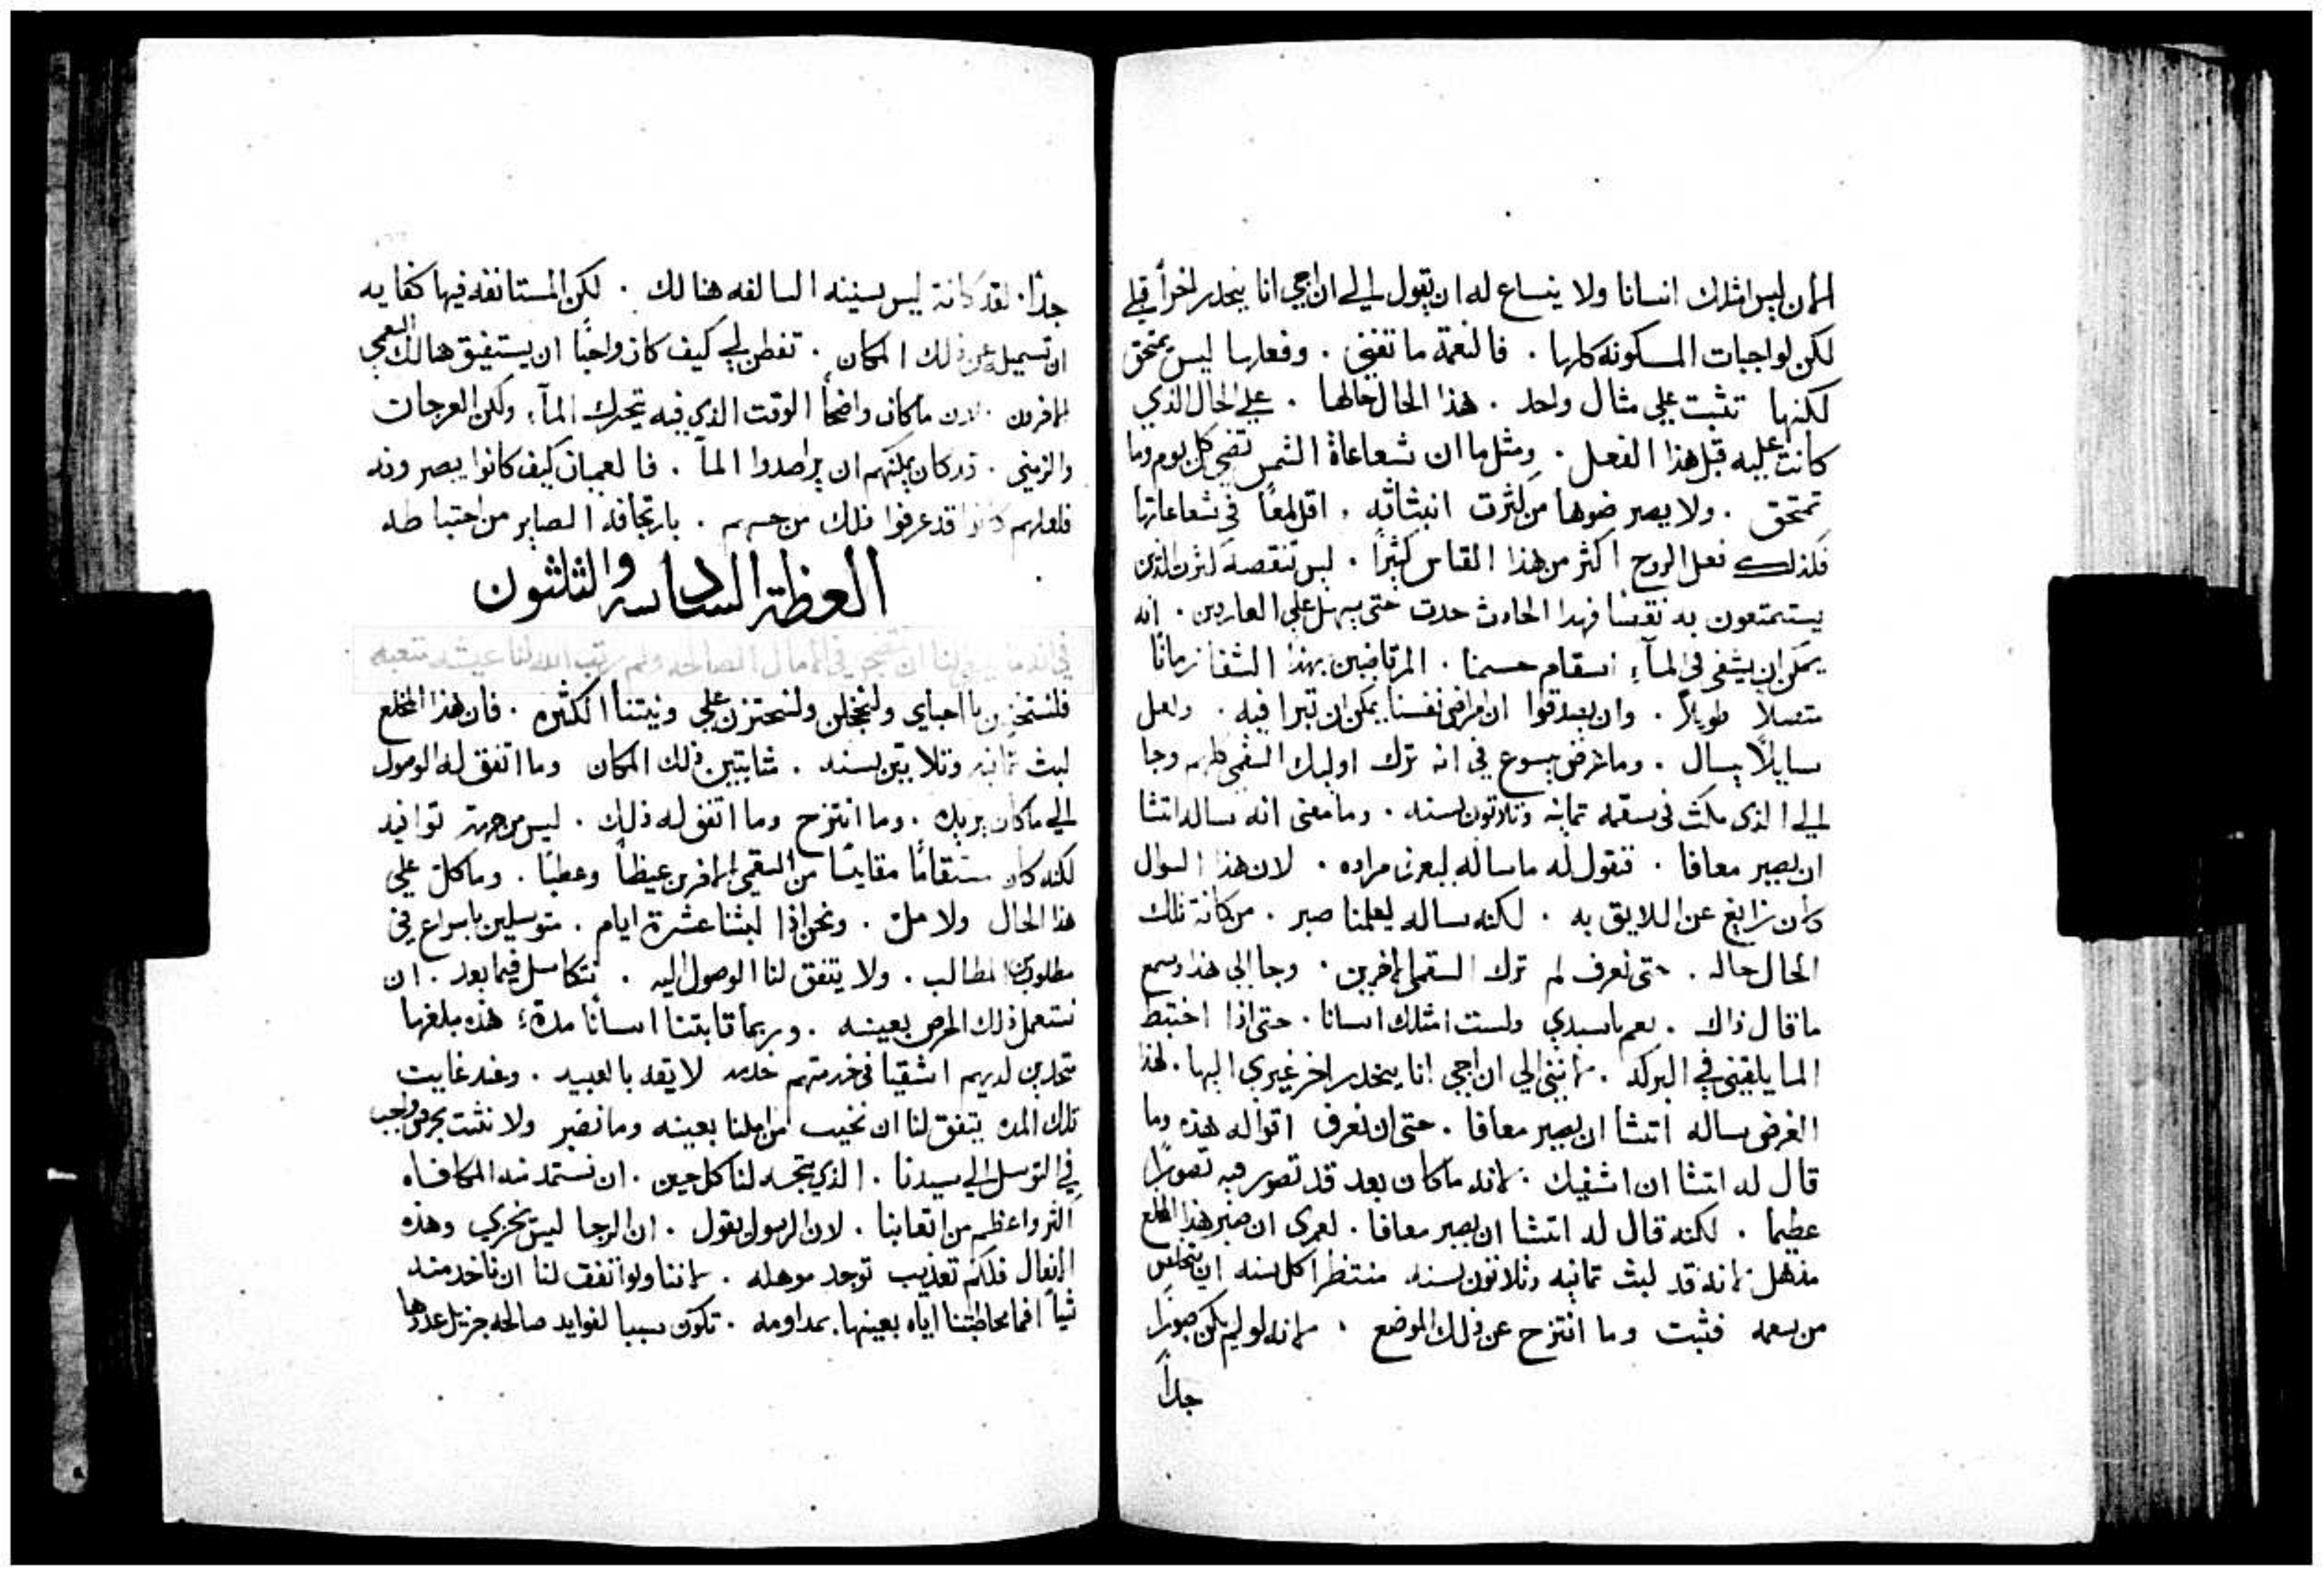 الان ليس امثلك انسانا ولا ينساع له ان يقول لي الي ان اجي انا ينحدر اخراً قبلي
لكن لواجبات المسكونة كلها . فالنعمة ما تفني . وفعلها ليس يمتحق
لكنها تثبت علي مثال واحد . هذا الحال حالها . علي الحال الذي
كانت عليه قبل هذا الفعل . ومثل ما ان شعاعاة الشمس تضي كل يوم وما
تمتحق . ولا يصير ضوها من كثرت انبثاثه . اقل لمعاً في شعاعاتها
فكذلك فعل الروح اكثر من هذا القياس كثيراً . ليس تنقصه كثرت الذين
يستمتعون به نقصا فهدا الحادث حدت حتي يسهل علي العارفين . انه
يمكن ان يشفي في المآء اسقام جسمنا . المرتاضين بهذا الشفا زمانا
متصلاً طويلاً . وان يصدقوا ان امراض نفسنا يمكن ان تبرا فيه . ولعل
سايلاً يسال . وما غرض يسوع في انه ترك اوليك السقمي كلهم وجا
الي الذي مكث في سقمه تمانيه وتلاتون سنه . وما معني انه ساله اتشا
ان يصير معافا . فنقول له ما ساله ليعرف مراده . لان هذا السوال
كان زايغ عن اللايق به . لكنه ساله ليعلمنا صبر . من كانة تلك
الحال حاله . حتي نعرف لم ترك السقمي الاخرين . وجا الي هذا وسمع
ما قال ذاك . نعم ياسيدي ولست امثلك انسانا . حتي اذا اختبط
الما يلقيني في البركه . لانني الي ان اجي انا ينحدر اخر غيري اليها . لهذا
الغرض ساله اتشا ان يصير معافا . حتي ان نعرف اقواله هذه وما
قال له اتشا ان اشفيك . لانه ما كان بعد قد تصور فيه تصوراً
عظيماً . لكنه قال له اتشا ان يصير معافا . لعمري ان صبر هذا المخلع
مذهل لانه قد لبث تمانيه وتلاتون سنه منتظرا كل سنه ان يتخلص
من سقمه فثبت وما انتزح عن ذلك الموضع . لانه لو لم يكن صبوراً
جداً
جداً . لقد كانة ليس سنينه السالفه هنالك . لكن المستانفه فيها كفايه
ان تسميله عن ذلك المكان . تفطن لي كيف كان واجباً ان يستفيق هنالك السقمي
الاخرون . لان ما كان واضحاً الوقت الذي فيه يتحرك المآء ولكن العرجات
والزمني . قد كان يمكنهم ان يراصدوا المآ . فالعميان كيف كانوا يبصرونه
فلعلهم كانوا قد عرفوا ذلك من حسهم . بارتجافه الصاير من اختباطه
العظة السادسة والثلثون
فلنستخزين يا احباي ولنخجلن ولنحتزن علي ونيتنا الكثيره . فان هذا المخلع
لبث تمانيه وتلاتين سنه . ثابتين ذلك المكان وما اتفق له الوصول
الي ما كان يريده . وما انتزح وما اتفق له ذلك . ليس من جهة توانيه
لكنه كان مقايسا من السقمي الاخرين غيظاً وعطباً . وما كلّ علي
هذا الحال ولا ملّ . ونحن اذا لبثنا عشرة ايام . متوسلين باسراع في
مطلوب من المطالب . ولا يتفق لنا الوصول اليه . نتكاسل فيما بعد . ان
نستعمل ذلك الحرص بعينه . وربما قابتنا انسانا مدةً هذه مبلغها
متجدين لديهم اشقيا في خدمتهم خدمه لا يقد بالعبيد . وعند غايت
تلك المده يتفق لنا ان نخيب من املنا بعينه وما نضجر ولا نثبت بحرص واجب
في التوسل الي سيدنا . الذي يتجه لنا كل حين . ان نستمد منه المكافاه
اكثر واعظم من اتعابنا . لان الرسول يقول . ان الرجا ليس يخزي وهذه
الافعال فلكم تعذيب توجد موهله . لاننا ولو اتفق لنا ان ناخد منه
شياً افما مخاطبتنا اياه بعينها بمداومه . تكون سببا لفوايد صالحه جزيل عددها